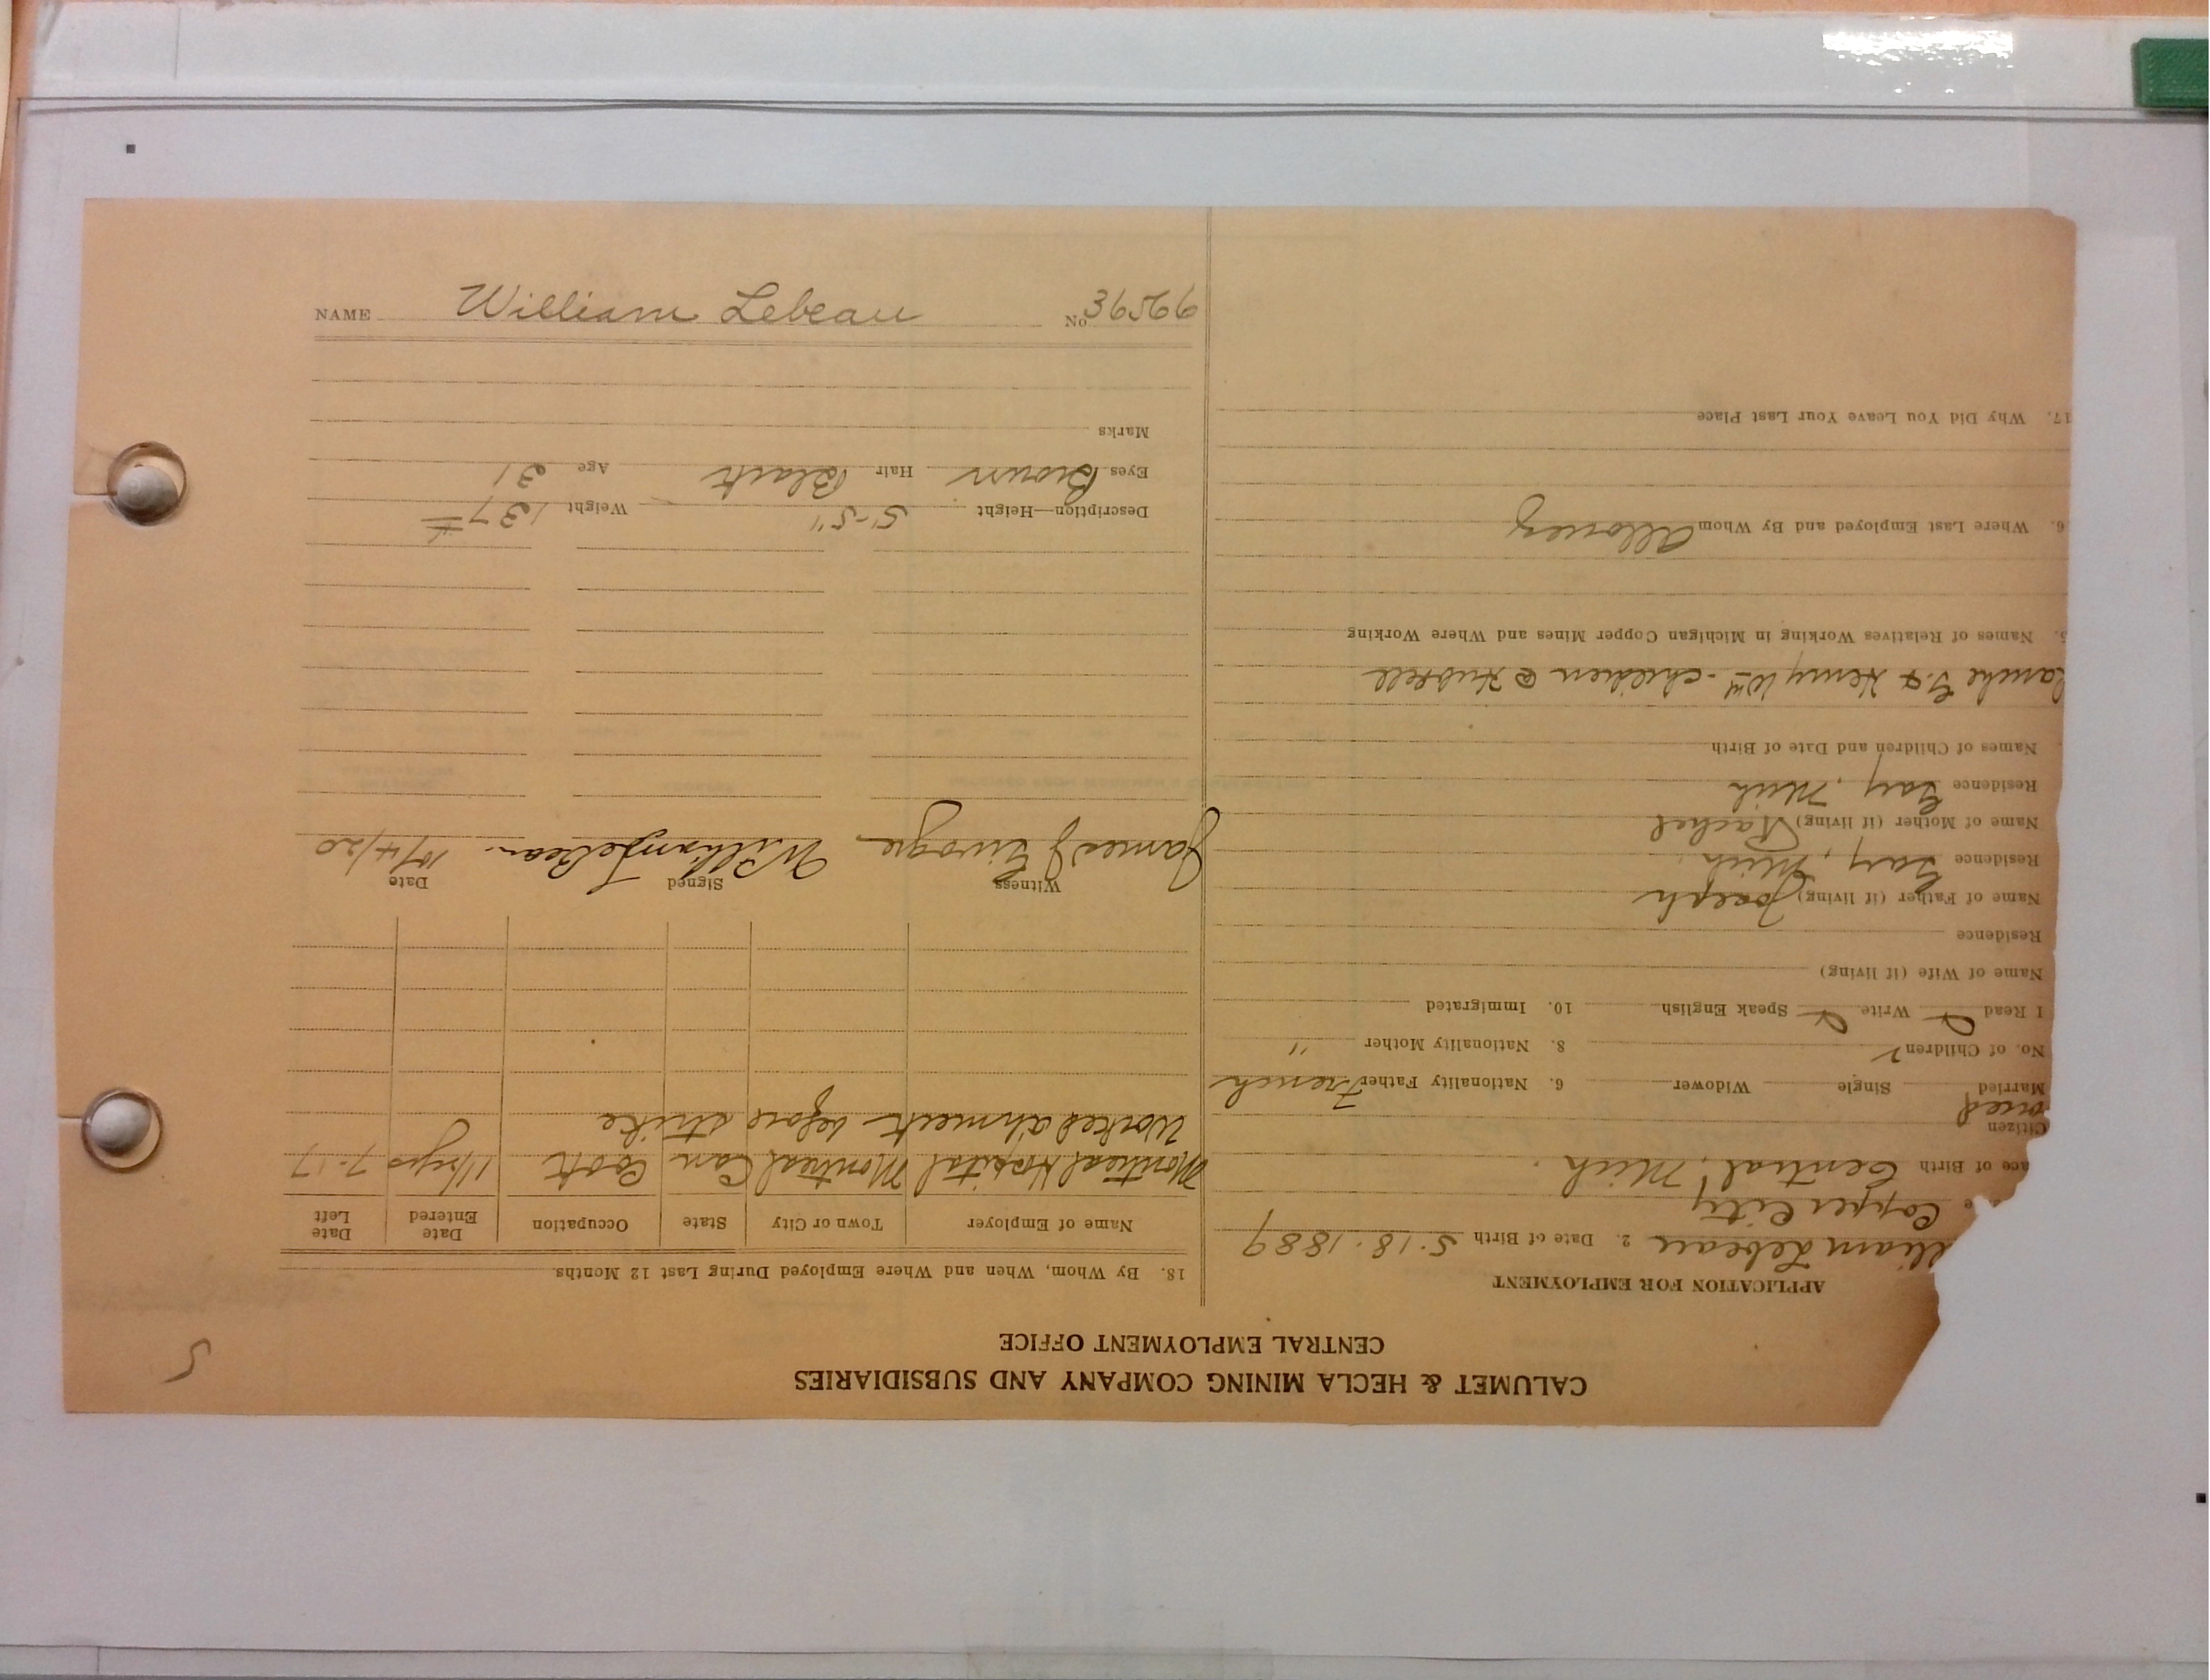 CALUMET & HECLA MINING COMPANY AND SUBSIDIARIES
CENTRAL EMPLOYMENT OFFICE
5
APPLICATION FOR EMPLOYMENT
lliam Lebeau 2. Date of Birth 5.18.1889
e Copper City
ace of Birth Central, Mich.
Citizen
orced
Married Single Widower 6. Nationality Father French
No. of Children 2 8. Nationality Mother "
I Read Write Speak English 10. Immigrated
Name of Wife (if living)
Residence
Name of Father (if living) Joseph
Residence Gay, Mich.
Name of Mother (if living) Rachel
Residence Gay, Mich
Names of Children and Date of Birth
lanche G. & Henry Wm - children @ Hubbell
5. Names of Relatives Working in Michigan Copper Mines and Where Working
6. Where Last Employed and By Whom Allouez
17. Why Did You Leave Your Last Place
18. By Whom, When and Where Employed During Last 12 Months
Name of Employer Town or City State Occupation Date Entered Date Left
Montreal Hospital Montreal Can Cook 1½ yrs 7-17
Worked Ahmeek before strike
Witness Signed Date
James J William LeBeau. 10/4/20
Description—Height 5'-5" Weight 137#
Eyes Brown Hair Black Age 31
Marks
NAME William Lebeau No. 36566